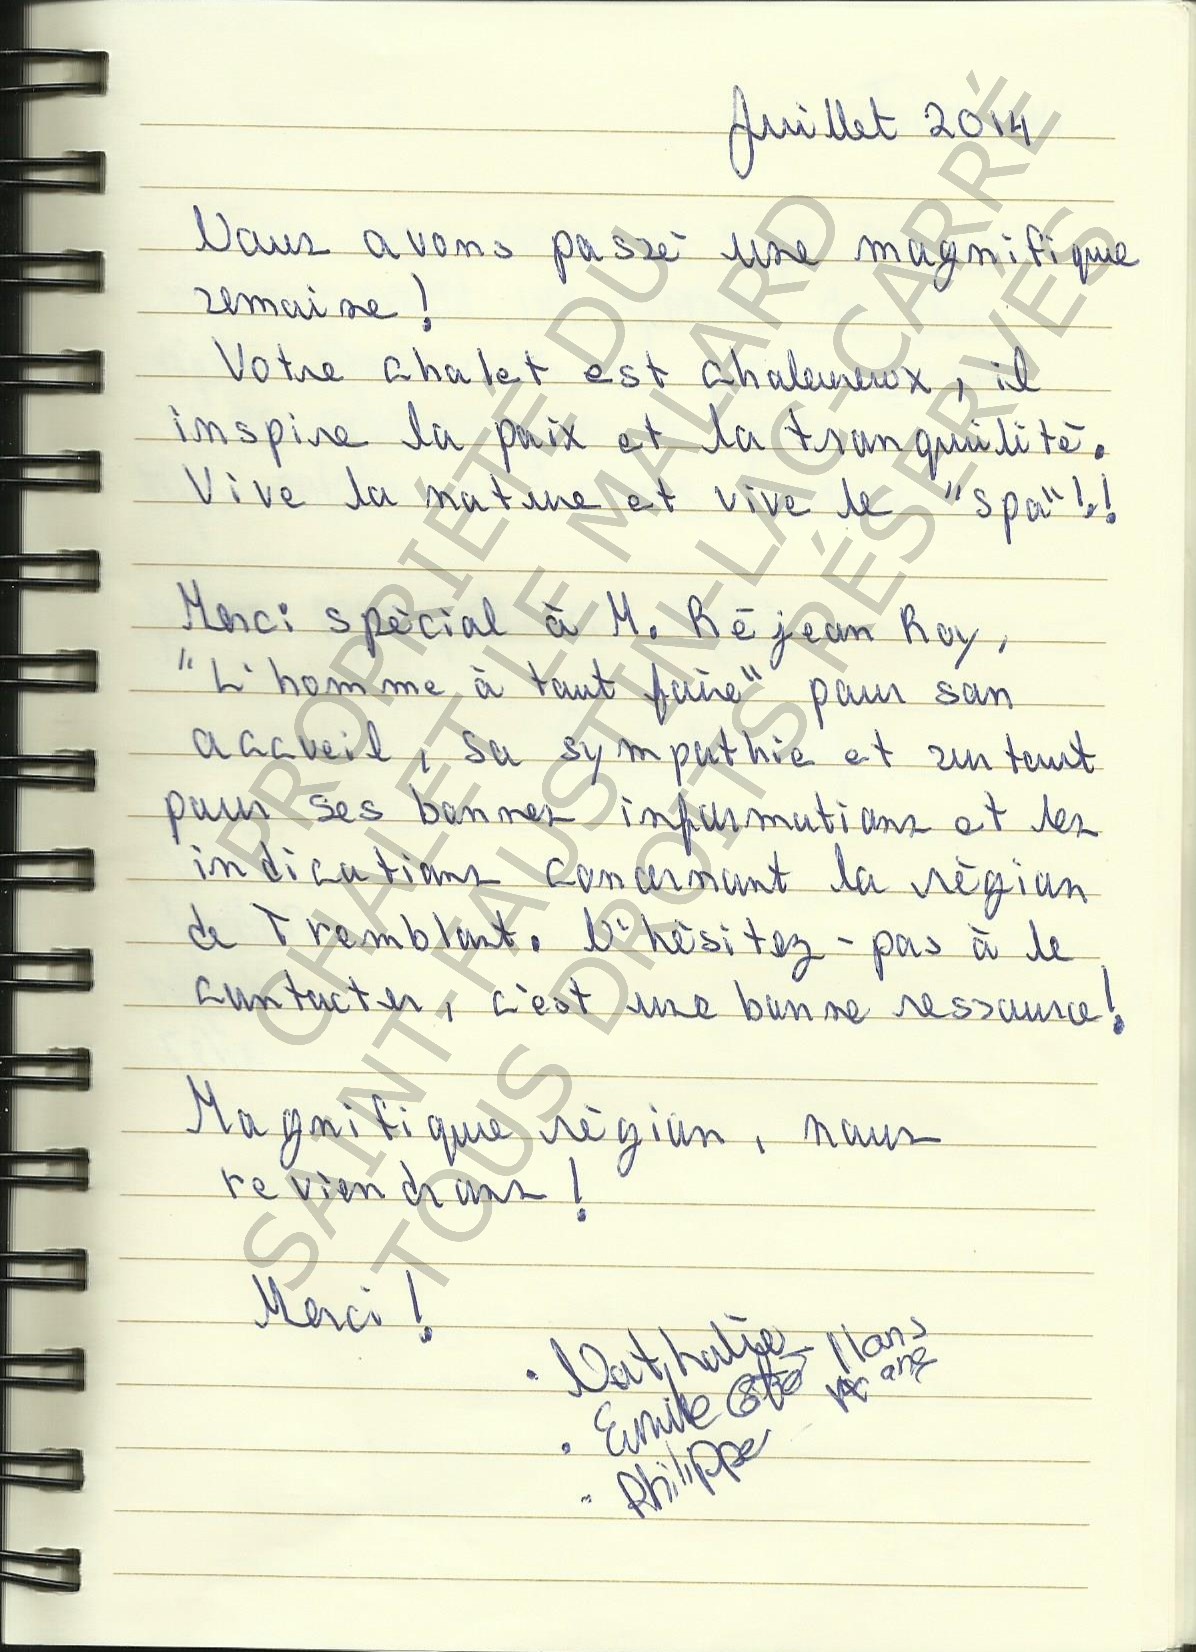 Juillet 2014
Nous avons passé une magnifique
semaine !
Votre chalet est chaleureux, il
inspire la paix et la tranquilité.
Vive la nature et vive le "spa" !,!
Merci spécial à M. Réjean Roy,
"L'homme à tout faire" pour son
accueil, sa sympathie et surtout
pour ses bonnes informations et les
indications concernant la région
de Tremblant. N'hésitez-pas à le
contacter, c'est une bonne ressource !
Magnifique région, nous
reviendrons !
Merci !
. Nathalie
. Emile Côté 11ans
ans
Philippe
PROPRIÉTÉ DU
CHALET LE MALARD
SAINT-FAUSTIN-LAC-CARRÉ
TOUS DROITS RÉSERVÉS